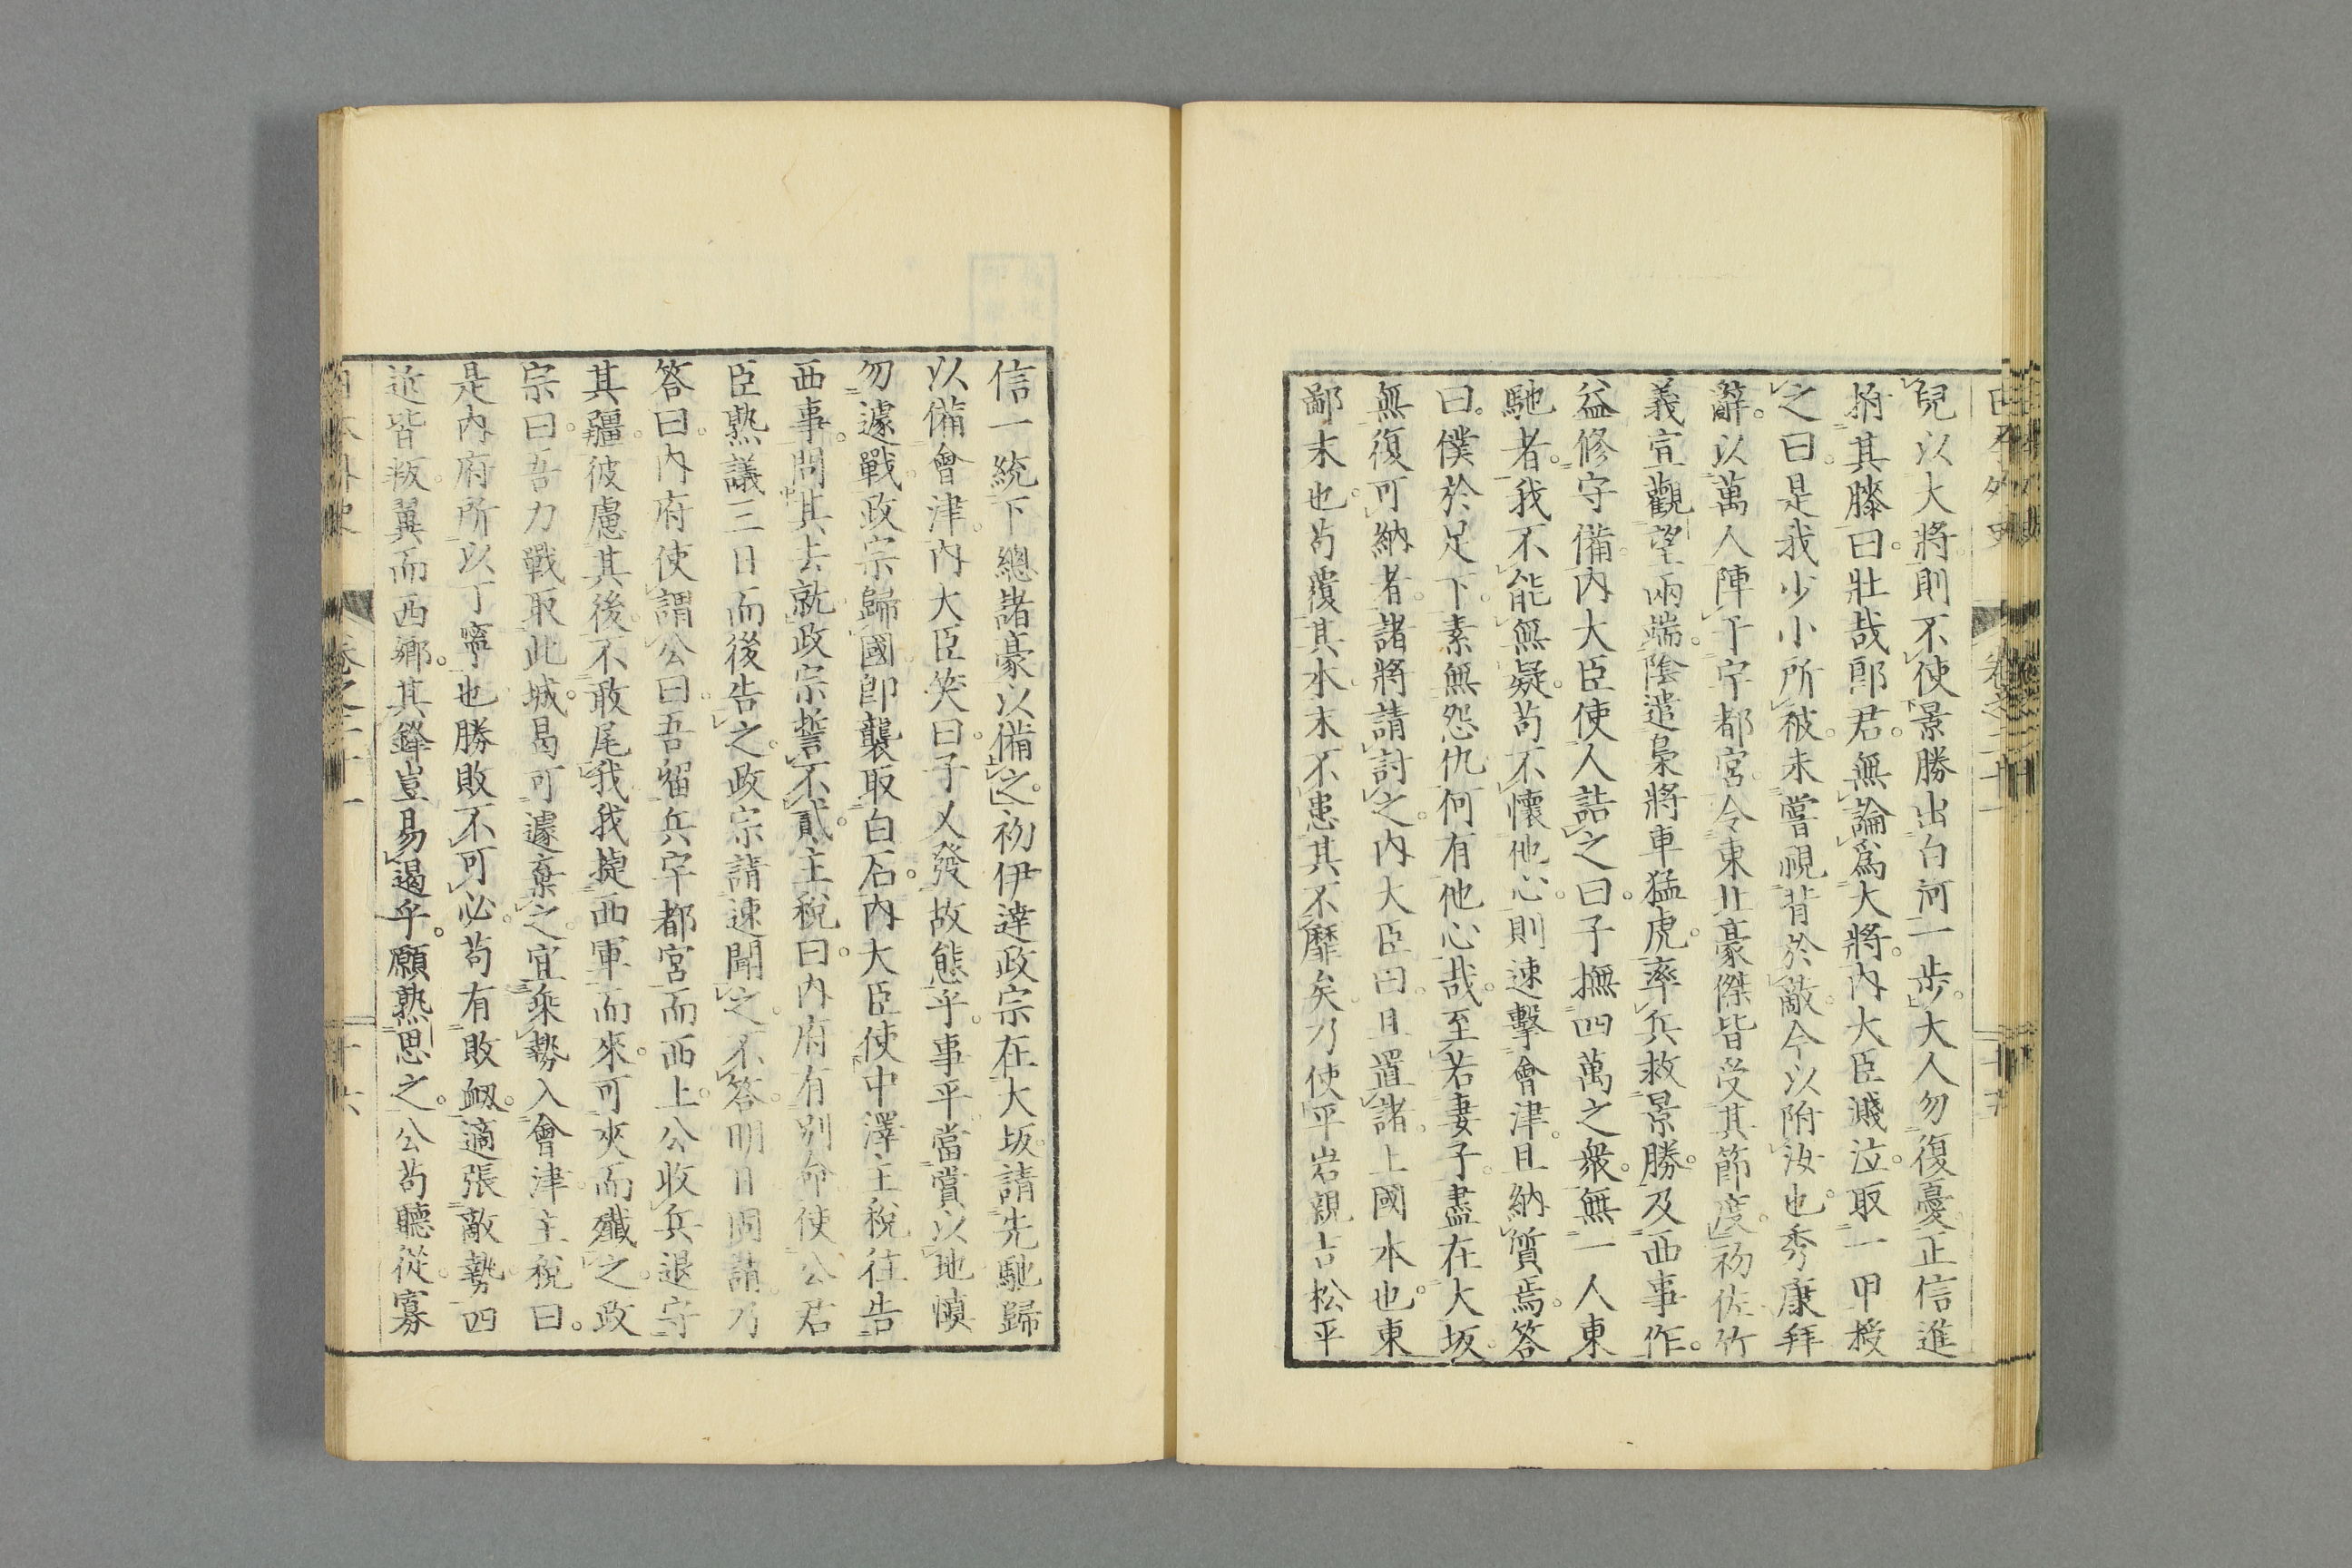 兒以大將則不使景勝出白河一步大人勿復憂正信進
拊其滕曰壯哉郎君無論爲大將內大臣濺泣取一甲授
之曰是我少小所被未嘗視背於敵今以附汝也秀康拜
辭以萬人陣于宇都宮令東北豪傑皆受其節度初佐竹
義宣觀望兩端陰遣梟將車猛虎率兵救景勝及西事作
益修守備內大臣使人詰之曰子撫四萬之衆無一人東
馳者我不能無疑苟不懷他心則速擊會津且納質焉答
曰僕於足下素無怨仇何有他心哉至若妻子盡在大坂
無復可納者諸將請討之內大臣曰且置諸上國本也東
鄙末也苟覆其本末不患其不靡矣乃使平岩親吉松平
信一統下總諸豪以備之初伊達政宗在大坂請先馳歸
以備會津內大臣笑曰子又發故態乎事平當賞以地愼
勿遽戰政宗歸國卽襲取白石內大臣使中澤主稅往告
西事問其去就政宗誓不貳主稅曰內府有別命使公君
臣熟議三日而後告之政宗請速聞之不答明日固請乃
答曰內府使謂公曰吾留兵宇都宮而西上公收兵退守
其疆彼慮其後不敢尾我我捷西軍而來可夾而殲之政
宗曰吾力戰取此城曷可遽棄之宜乘勢入會津主稅曰
是內府所以丁寧也勝敗不可必苟有敗衂適張敵勢四
近皆叛翼而西鄕其鋒豈易遏乎願熟思之公苟聽從寡
日本外史 卷之二十一 十六